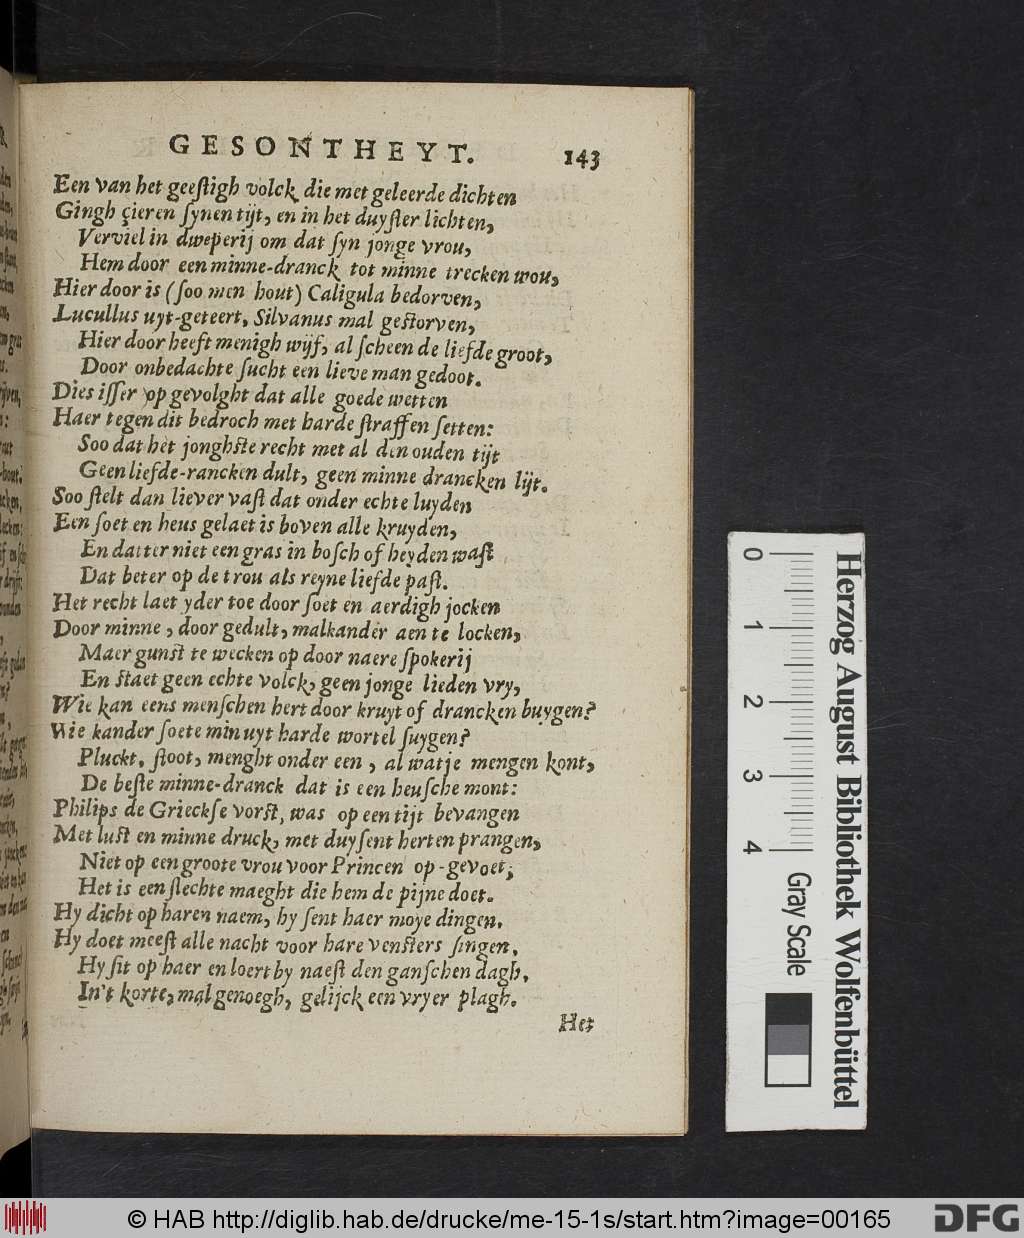 GESONTHEYT. 143
Een van het geeſtigh volck die met geleerde dichten
Gingh çieren ſynen tijt, en in het duyſter lichten,
Verviel in dweperij om dat ſyn jonge vrou,
Hem door een minne-dranck tot minne trecken wou,
Hier door is (ſoo men hout) Caligula bedorven,
Lucullus uyt-geteert, Silvanus mal geſtorven,
Hier door heeft menigh wijf, al ſcheen de liefde groot,
Door onbedachte ſucht een lieve man gedoot.
Dies iſſer op gevolght dat alle goede wetten
Haer tegen dit bedroch met harde ſtraffen ſetten:
Soo dat het jonghſte recht met al den ouden tijt
Geen liefde-rancken dult, geen minne drancken lijt.
Soo ſtelt dan liever vaſt dat onder echte luyden
Een ſoet en heus gelaet is boven alle kruyden,
En datter niet een gras in boſch of heyden waſt
Dat beter op de trou als reyne liefde paſt.
Het recht laet yder toe door ſoet en aerdigh jocken
Door minne, door gedult, malkander aen te locken,
Maer gunſt te wecken op door naere ſpokerij
En ſtaet geen echte volck, geen jonge lieden vry,
Wie kan eens menſchen hert door kruyt of drancken buygen?
Wie kander ſoete min uyt harde wortel ſuygen?
Pluckt, ſtoot, menght onder een, al watje mengen kont,
De beſte minne-dranck dat is een heuſche mont:
Philips de Grieckſe vorſt, was op een tijt bevangen
Met luſt en minne druck, met duyſent herten prangen,
Niet op een groote vrou voor Princen op-gevoet,
Het is een ſlechte maeght die hem de pijne doet.
Hy dicht op haren naem, hy ſent haer moye dingen,
Hy doet meeſt alle nacht voor hare venſters ſingen,
Hy ſit op haer en loert by naeſt den ganſchen dagh,
In't korte, mal genoegh, gelijck een vryer plagh.
Het
0 1 2 3 4
Gray Scale
Herzog August Bibliothek Wolfenbüttel
© HAB http://diglib.hab.de/drucke/me-15-1s/start.htm?image=00165
DFG